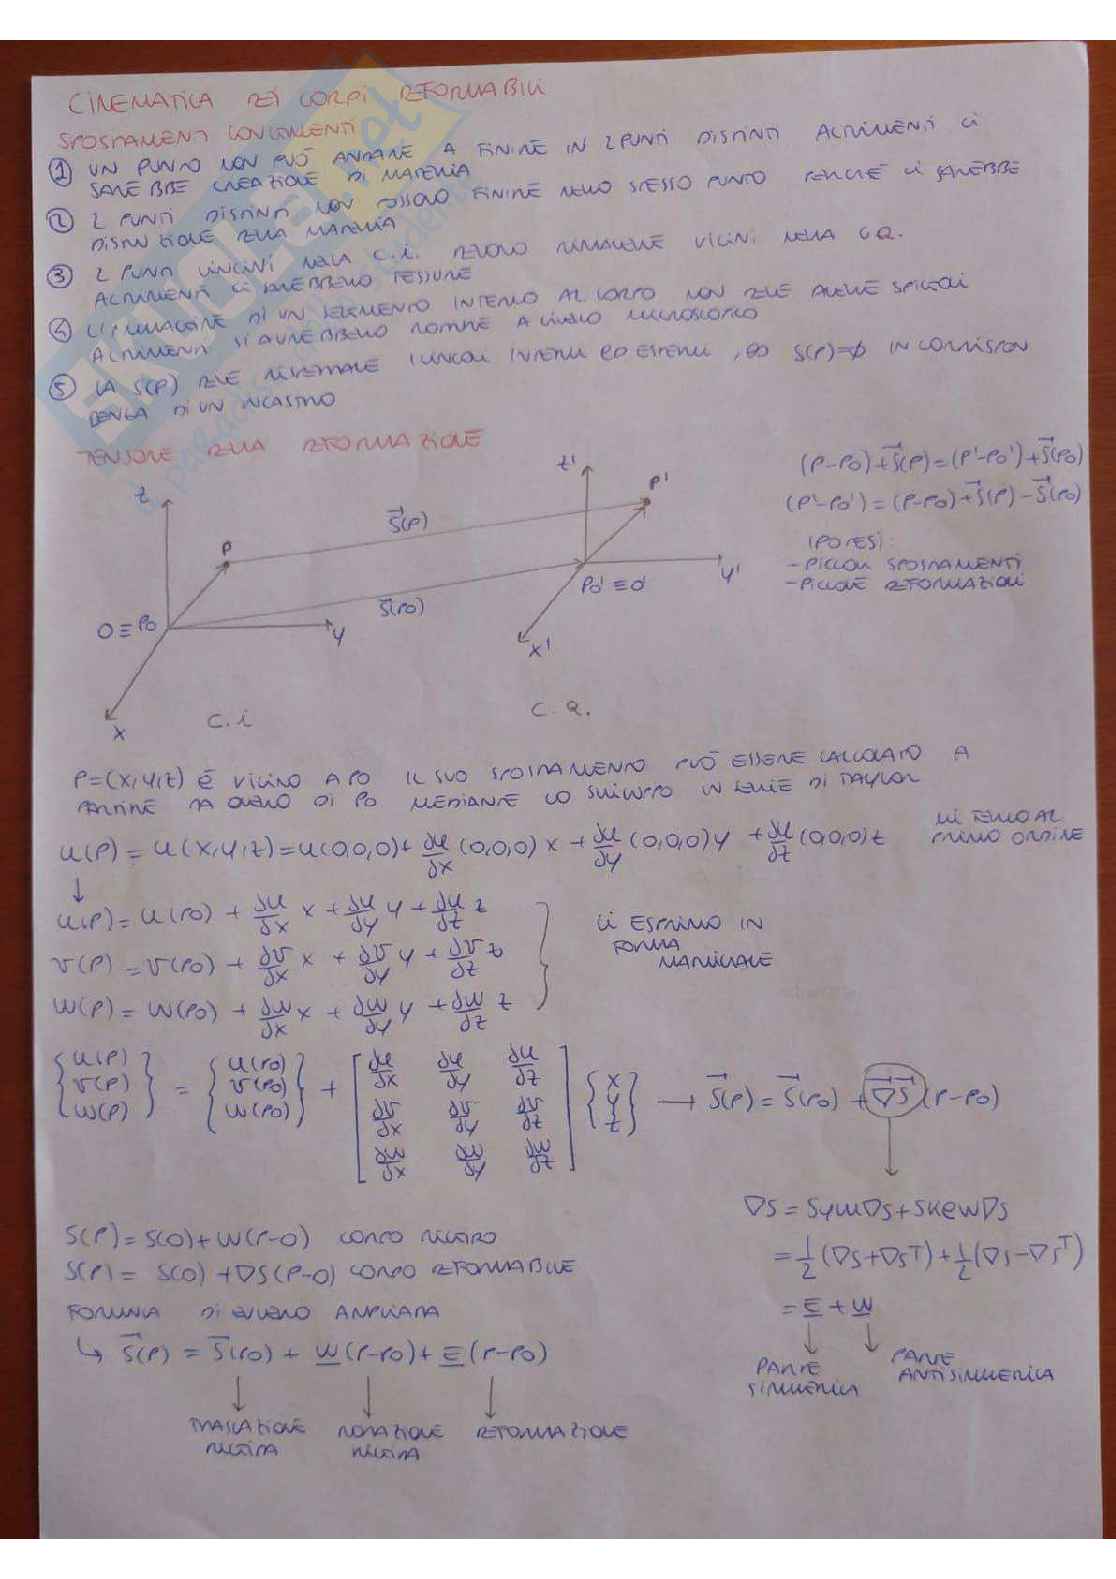 CINEMATICA DEI CORPI DEFORMABILI
SPOSTAMENTI CONGRUENTI
① UN PUNTO NON PUÓ ANDARE A FINIRE IN 2 PUNTI DISTINTI ALTRIMENTI CI
SAREBBE CREAZIONE DI MATERIA
② 2 PUNTI DISTINTI NON POSSONO FINIRE NELLO STESSO PUNTO PERCHÉ CI SAREBBE
DISTRUZIONE DELLA MATERIA
③ 2 PUNTI VICINI NELLA C.i. DEVONO RIMANERE VICINI NELLA C.D.
ALTRIMENTI CI SAREBBERO FESSURE
④ L'IMMAGINE DI UN SEGMENTO INTERNO AL CORPO NON DEVE AVERE SPIGOLI
ALTRIMENTI SI AVREBBERO ROTTURE A LIVELLO MICROSCOPICO
⑤ LA S(P) DEVE RISPETTARE I VINCOLI INTERNI ED ESTERNI, ES S(P)=∅ IN CORRISPON
DENZA DI UN INCASTRO
TENSORE DELLA DEFORMAZIONE
(P-P0)+S(P)=(P'-P0')+S(P0)
(P'-P0')=(P-P0)+S(P)-S(P0)
IPOTESI:
-PICCOLI SPOSTAMENTI
-PICCOLE DEFORMAZIONI
z
P
S(P)
S(P0)
O≡P0
y
x
C.i
z'
P'
P0'≡O'
y'
x'
C.D.
P=(x,y,z) É VICINO A P0 IL SUO SPOSTAMENTO PUÓ ESSERE CALCOLATO A
PARTIRE DA QUELLO DI P0 MEDIANTE LO SVILUPPO IN SERIE DI TAYLOR
u(P) = u(x,y,z)=u(0,0,0)+ ∂u/∂x (0,0,0) x + ∂u/∂y (0,0,0)y + ∂u/∂z (0,0,0)z
MI FERMO AL
PRIMO ORDINE
↓
u(P)= u(P0) + ∂u/∂x x + ∂u/∂y y + ∂u/∂z z
v(P) = v(P0) + ∂v/∂x x + ∂v/∂y y + ∂v/∂z z
w(P)= w(P0) + ∂w/∂x x + ∂w/∂y y + ∂w/∂z z
LI ESPRIMO IN
FORMA
MATRICIALE
{u(P) v(P) w(P)} = {u(P0) v(P0) w(P0)} + [∂u/∂x ∂u/∂y ∂u/∂z ∂v/∂x ∂v/∂y ∂v/∂z ∂w/∂x ∂w/∂y ∂w/∂z] {x y z} → S(P) = S(P0) + ∇S (P-P0)
∇S = Sym∇S + Skew∇S
= 1/2 (∇S+∇S^T)+1/2(∇S-∇S^T)
= E + W
PARTE
SIMMETRICA
PARTE
ANTISIMMETRICA
S(P) = S(O)+W(P-O) CORPO RIGIDO
S(P) = S(O) +∇S(P-O) CORPO DEFORMABILE
FORMULA DI EULERO AMPLIATA
↳ S(P) = S(P0) + W(P-P0)+ E(P-P0)
TRASLAZIONE
RIGIDA
ROTAZIONE
RIGIDA
DEFORMAZIONE